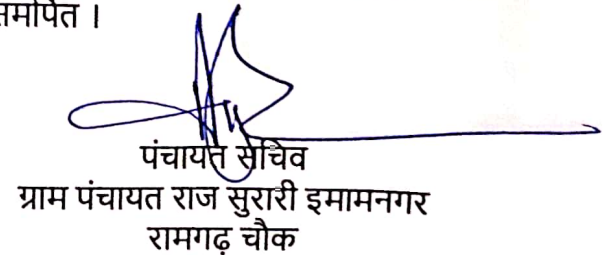 समर्पित ।
पंचायत सचिव
ग्राम पंचायत राज सुरारी इमामनगर
रामगढ़ चौक